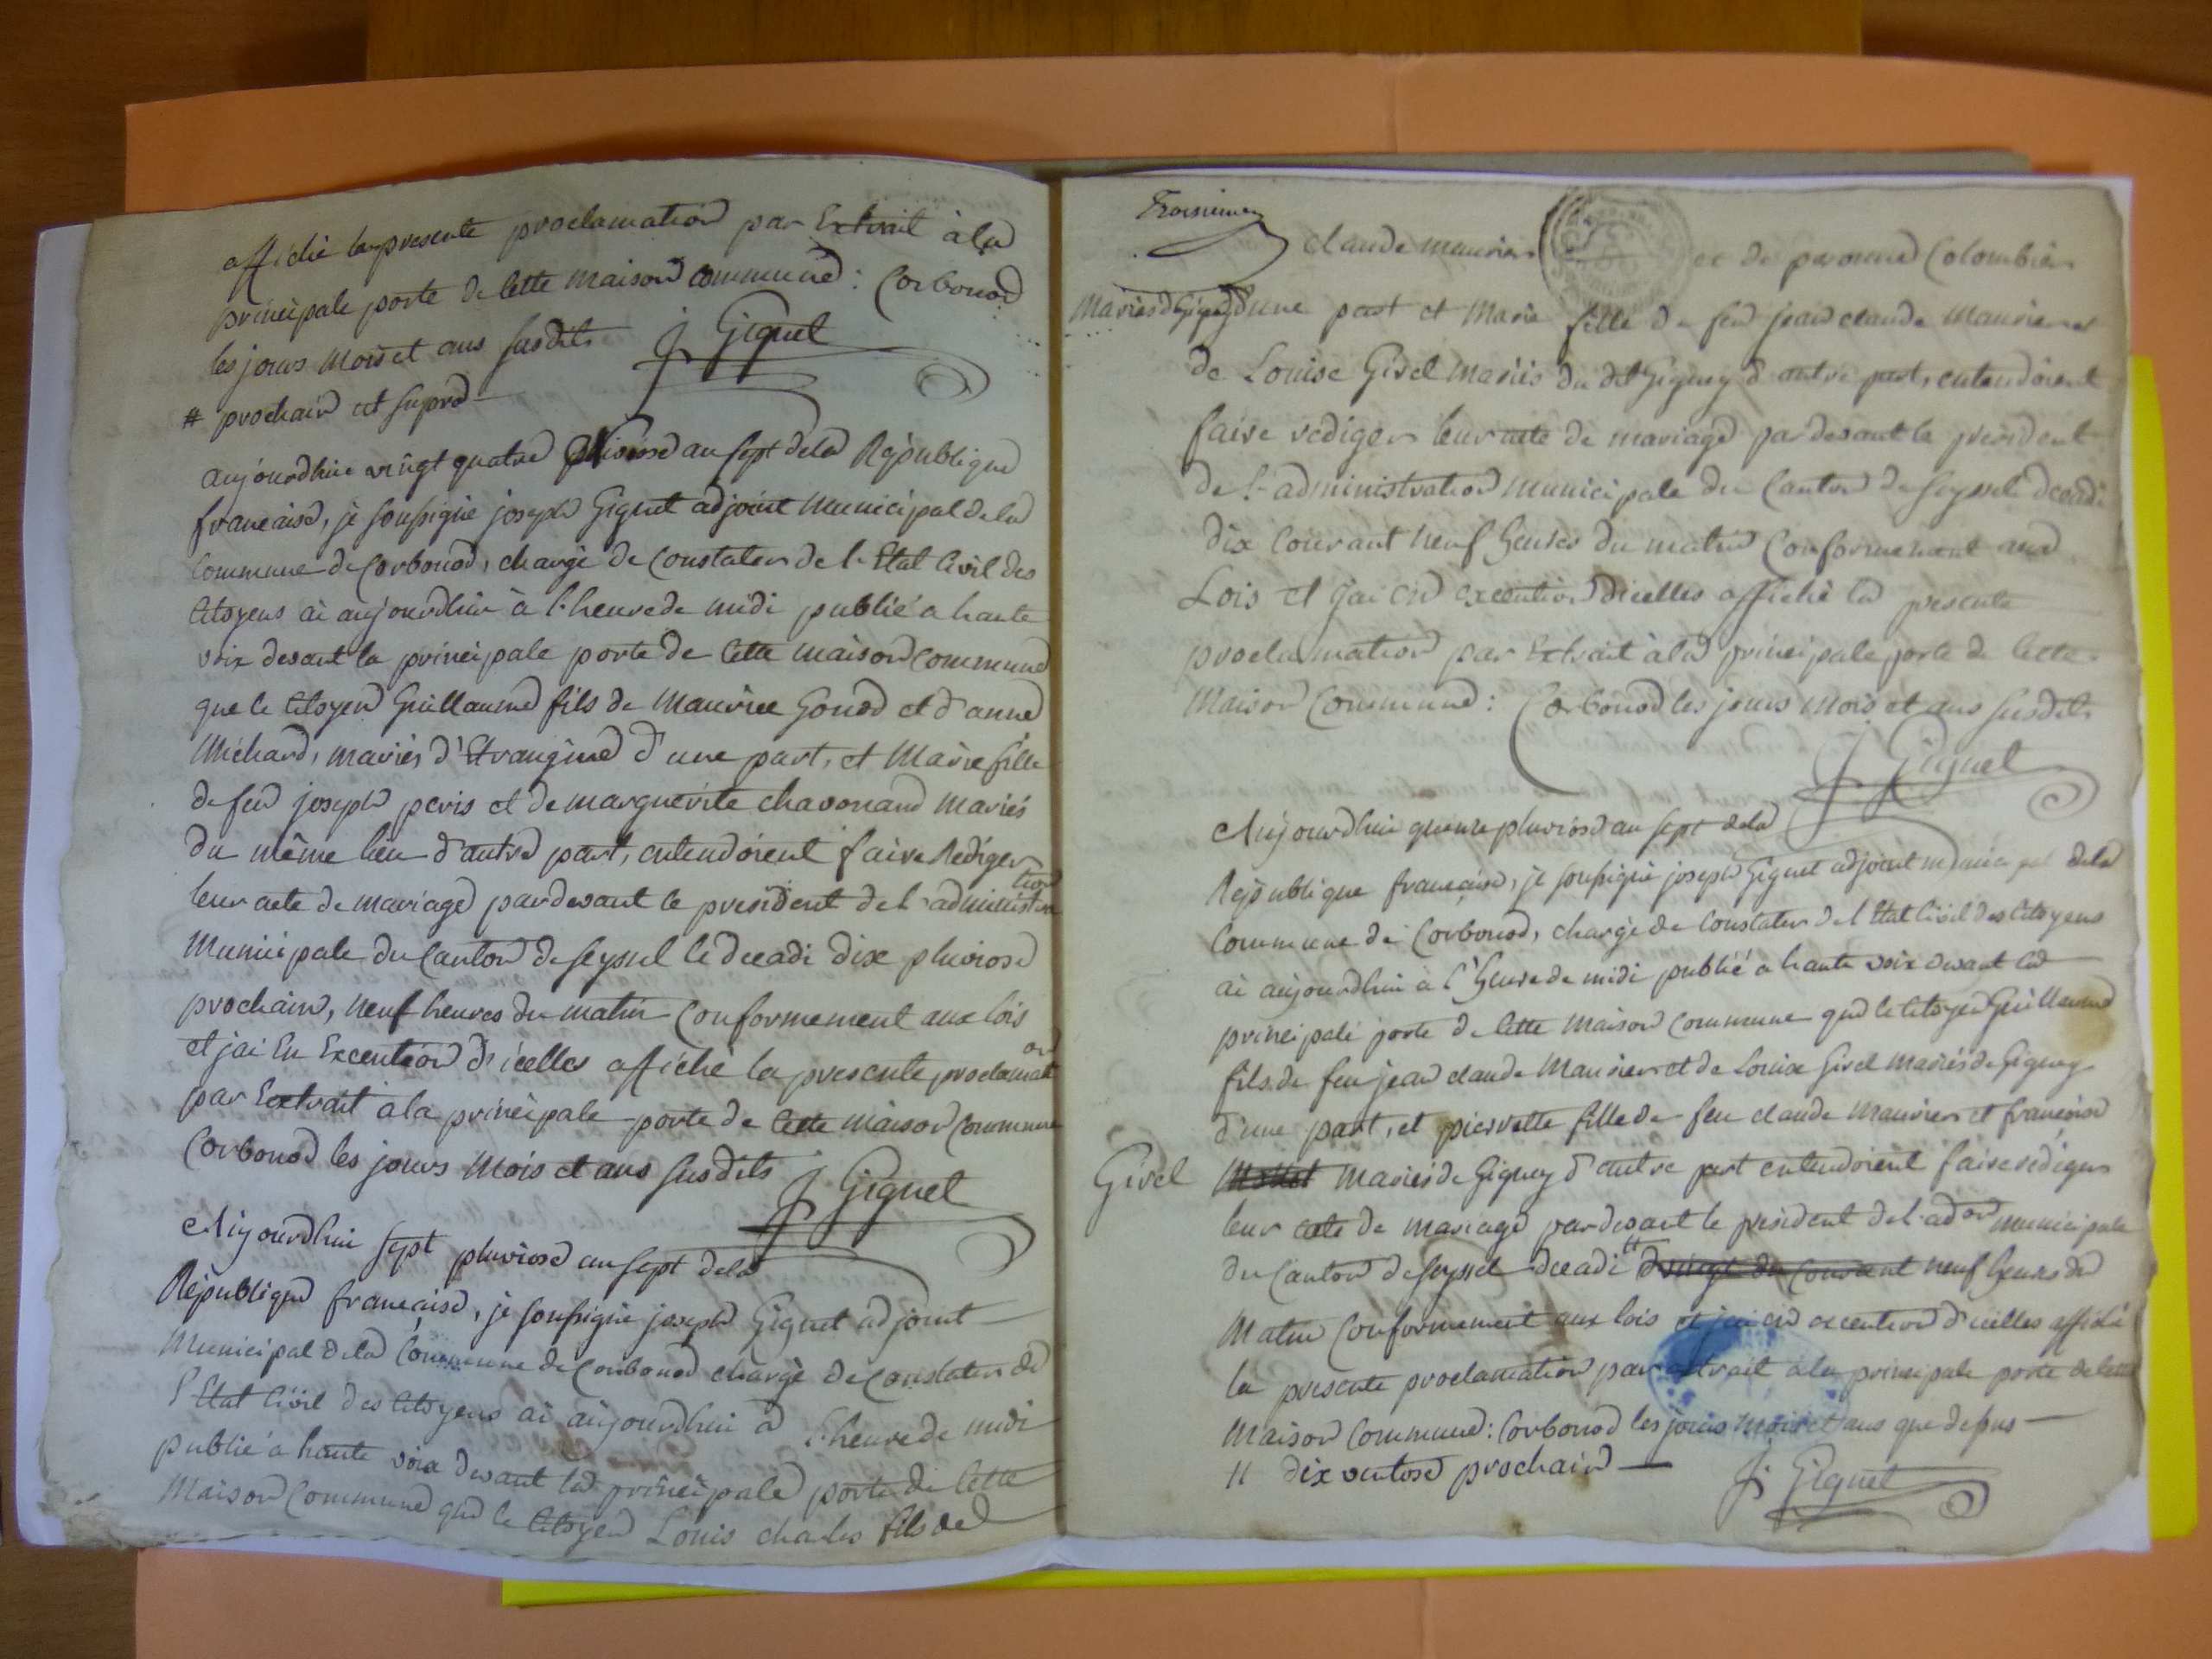 affiché la presente proclamation par Extrait à la
principale porte de cette maison commune : Corbonod
les jours mois et ans susdits J Giguet
# prochain ut supra
aujourdhui vingt quatre Nivose an sept de la République
française, je soussigné joseph Giguet adjoint municipal de la
Commune de Corbonod, chargé de Constater de l'Etat Civil des
Citoyens ai aujourdhui à l'heure de midi publié a haute
voix devant la principale porte de cette maison commune
que le Citoyen Guillaume fils de Maurice Gonod et d'anne
Michard, mariés d'Etrangine d'une part, et Marie fille
de feu joseph peris et de marguerite chavonand mariés
du même lieu d'autre part, entendoient faire Rediger
leur acte de mariage pardevant le president de l'administration
Municipale du Canton de seyssel le decadi dix pluviose
prochain, neuf heures du matin Conformement aux lois
et jai En Execution d'icelles affiché la presente proclamation
par Extrait à la principale porte de Cette maison Commune
Corbonod les jours Mois et ans susdits J Giguet
Aujourdhui sept pluviose an sept de la
République française, je soussigné joseph Giguet adjoint
Municipal de la Commune de Corbonod chargé de Constater de
l'Etat Civil des Citoyens ai aujourdhui à l'heure de midi
publié a haute voix devant la principale porte de Cette
Maison Commune que le Citoyen Louis charles fils de
Troisieme
claude maurier et de peronne Colombier
Mariés de Gignez d'une part et Marie fille de feu jean claude Maurier et
de Louise Girel Mariés du dit Gignez d'autre part, entendoient
faire rediger leur acte de mariage pardevant le president
de l'administration Municipale du Canton de seyssel decadi
dix Courant neuf heures du matin Conformement aux
Lois et jai en execution d'icelles affiché la presente
proclamation par Extrait à la principale porte de Cette
Maison Commune : Corbonod les jours Mois et ans susdits
J Giguet
Aujourdhui quinze pluviose an sept de la
République française, je soussigné joseph Giguet adjoint municipal de la
Commune de Corbonod, chargé de Constater de l'Etat Civil des Citoyens
ai aujourdhui à l'heure de midi publié a haute voix devant la
principale porte de Cette Maison Commune que le Citoyen Guillaume
fils de feu jean claude Maurier et de Louise Girel Mariés de Gignez
d'une part, et pierrette fille de feu claude Maurier et françoise
Girel Mariés de Gignez d'autre part entendoient faire rediger
leur acte de mariage pardevant le president de l'adon municipale
du Canton de seyssel decadi # vingt du Courant neuf heures du
Matin Conformement aux lois et jai en execution d'icelles affiché
la presente proclamation par extrait à la principale porte de Cette
Maison Commune : Corbonod les jours Mois et ans que dessus
# dix ventose prochain J Giguet